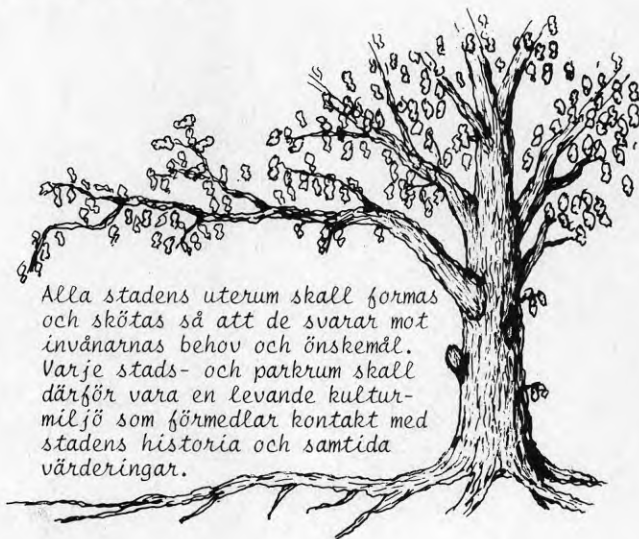 Alla stadens uterum skall formas
och skötas så att de svarar mot
invånarnas behov och önskemål.
Varje stads- och parkrum skall
därför vara en levande kultur-
miljö som förmedlar kontakt med
stadens historia och samtida
värderingar.